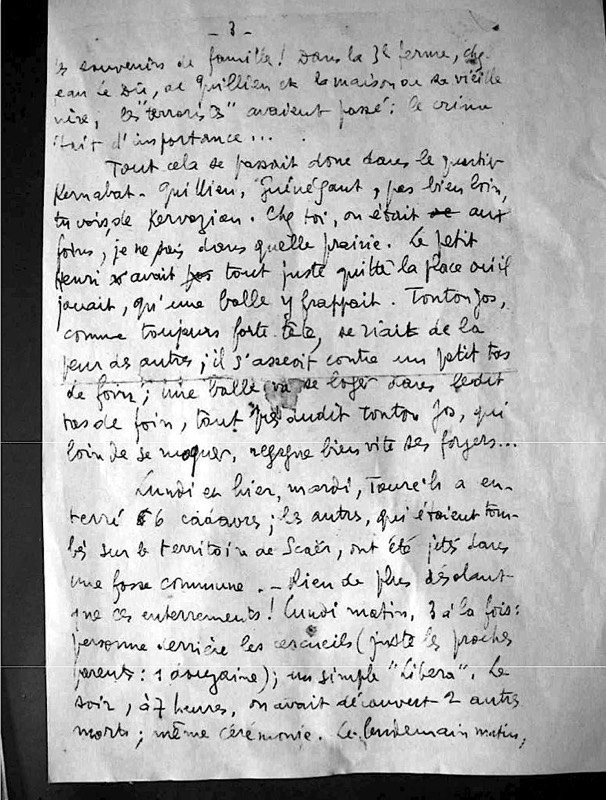 - 3 -
souvenirs de famille ! Dans la 3e ferme, chez
ean Le Dû, de Quillien et la maison de sa vieille
mère, les "terroristes" avaient passé : le crime
était d'importance...
Tout cela se passait donc dans le quartier
Kernabat - Quillien, Guénégant, pas bien loin,
tu vois, de Kervozian. Chez toi, on était aux
foins, je ne sais dans quelle prairie. Le petit
Henri avait tout juste quitté la place où il
jouait, qu'une balle y frappait. Tonton Jos,
comme toujours forte tête, se riait de la
peur des autres ; il s'asseoit contre un petit tas
de foin ; une balle va se loger dans ledit
tas de foin, tout près dudit tonton Jos, qui
loin de se moquer, regagne bien vite ses foyers...
Lundi et hier, mardi, Tourc'h a en-
terré 6 cadavres ; les autres, qui étaient tom-
bés sur le territoire de Scaër, ont été jetés dans
une fosse commune. - Rien de plus désolant
que ces enterrements ! Lundi matin, 3 à la fois :
personne derrière les cercueils (juste les proches
parents : 1 douzaine) ; un simple "Libera". Le
soir, à 7 heures, on avait découvert 2 autres
morts ; même cérémonie. Le lendemain matin,